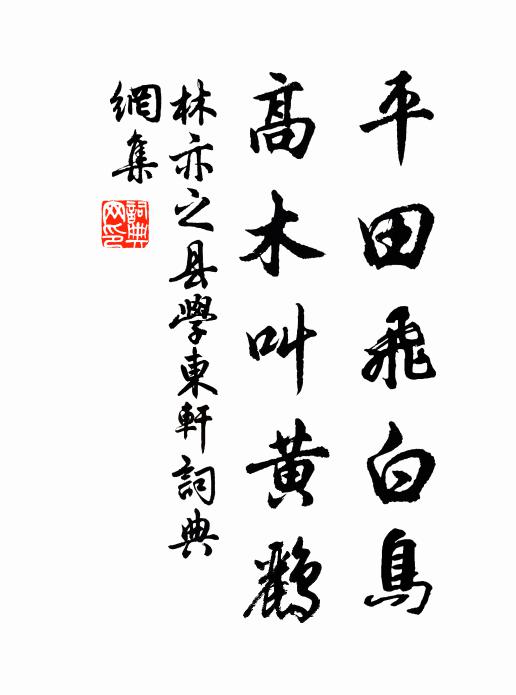 平田飛白鳥
髙木叫黄鸝
林亦之县學東軒詞典
網集
詞典
网印